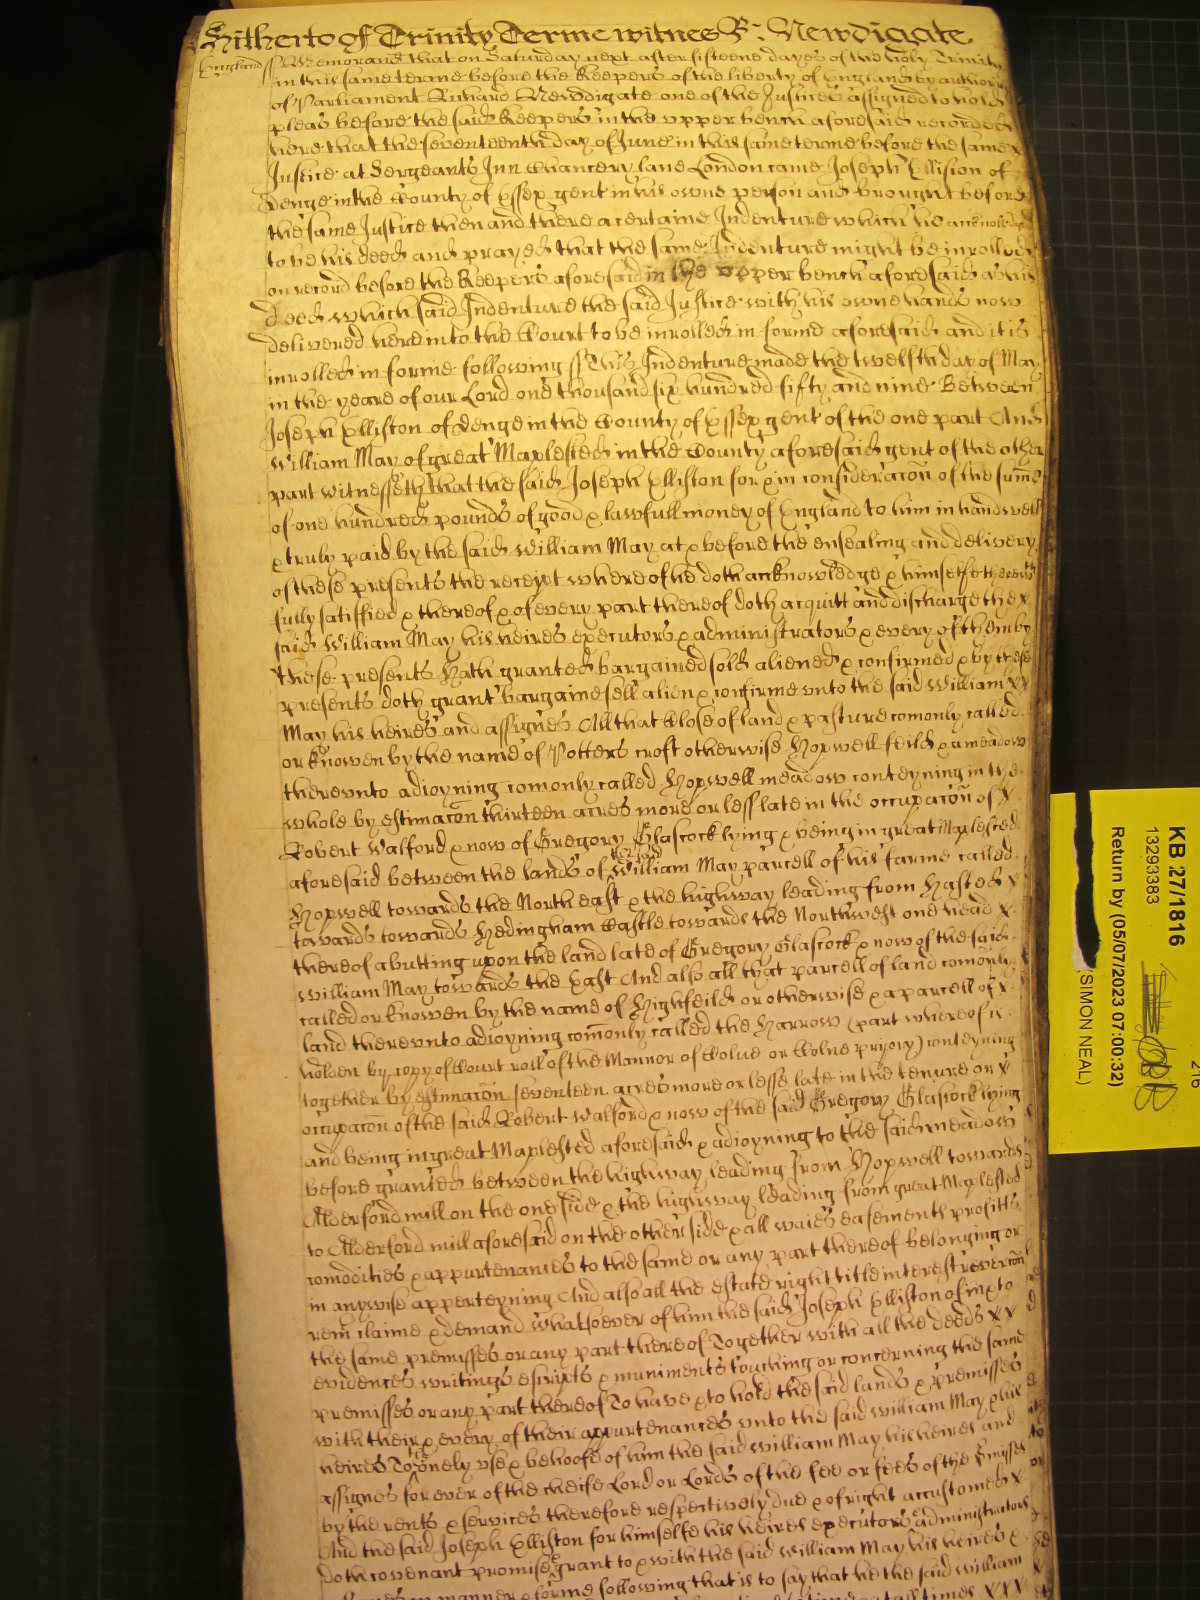 Hitherto of Trinity Terme witnes R: Newdigate
England ss Memorand that on Saturday next after fifteene dayes of the holy Trinity
in this same terme before the Keepers of the liberty of England by authority
of Parliament Richard Newdigate one of the Justices assigned to hold
pleas before the said Keepers in the upper bench aforesaid recorded
here that the seventeenth day of June in this same terme before the same x
Justice at Sergeants Inn Chancery lane London came Joseph Ellison of
Denge in the County of Essex gent in his owne person and brought before
the same Justice then and there a certaine Indenture which he acknowledged
to be his deed and prayed that the same Indenture might be inrolled
on record before the Keepers aforesaid in the upper bench aforesaid as his
Deed which said Indenture the said Justice with his owne hands now
delivered here into the Court to be inrolled in forme aforesaid and it is
inrolled in forme following ss This Indenture made the twelfth day of May
in the yeare of our Lord one thousand six hundred fifty and nine Betweene
Joseph Elliston of Denge in the County of Essex gent of the one part And
William May of great Maplested in the County aforesaid gent of the other
part witnesseth that the said Joseph Elliston for & in consideracon of the summe
of one hundred pounds of good & lawfull money of England to him in hand well
& truly paid by the said William May at & before the ensealing and delivery
of these presents the receipt whereof he doth acknowledge & himselfe therewth
fully satisfied & thereof & of every part thereof doth acquitt and discharge the x
said William May his heires executors & administrators & every of them by
these presents Hath granted bargained sold aliened & confirmed & by these
presents doth grant bargaine sell alien & confirme unto the said William xx
May his heires and assignes All that Close of land & pasture comonly called
or knowen by the name of Potters croft otherwise Hopwell feild & a meadow
therevnto adioyning comonly called Hopwell meadow conteyning in the
whole by estimacon thirteen acres more or less late in the occupacon of x
Robert Walford & now of Gregory Glascock lying & being in great Maplested
aforesaid between the lands of the said William May parcell of his farme called
Hopwell towards the North east & the highway leading from Hasted x
towards towards Hedingham Castle towards the Northwest one head x
thereof abutting upon the land late of Gregory Glascock & now of the said
William May towards the East And also all that parcell of land comonly
called or knowen by the name of Highfeild or otherwise & a parcell of x
land therevnto adioyning comonly called the Harrow (part whereof is
holden by copy of Court roll of the Mannor of Colne or Colne priory) conteyning
together by estimacon seventeen acres more or lesse late in the tenure or x
occupacon of the said Robert Walford & now of the said Gregory Glascock lying
and being in great Maplested aforesaid & adioyning to the said meadow
before granted between the highway leading from Hopwell towards
Alderford mill on the one side & the highway leading from great Maplested
to Alderford mill aforesaid on the other side & all waies easements profitts
comodities & appurtenances to the same or any part thereof belonging or
in anywise apperteyning And also all the estate right title interest revercon
rem claime & demand whatsoever of him the said Joseph Elliston of in & to
the same premisses or any part thereof Together with all the deeds xx
evidences writings escripts & muniments touching or concerning the same
premisses or any part thereof To have & to hold the said lands & premisses
with their & every of their appurtenances unto the said William May & his
heires To thonely use & behoofe of him the said William May his heires and
assignes for ever of the cheife Lord or Lords of the fee or fees of the premisses
by the rents & services therefore respectively due & of right accustomed x
And the said Joseph Elliston for himselfe his heires executors & administrators
doth covenant promise & grant to & with the said William May his heires &
manner & forme following that is to say that he the said William
KB 27/1816
13293383
Return by (05/07/2023 07:00:32)
SIMON NEAL)
216